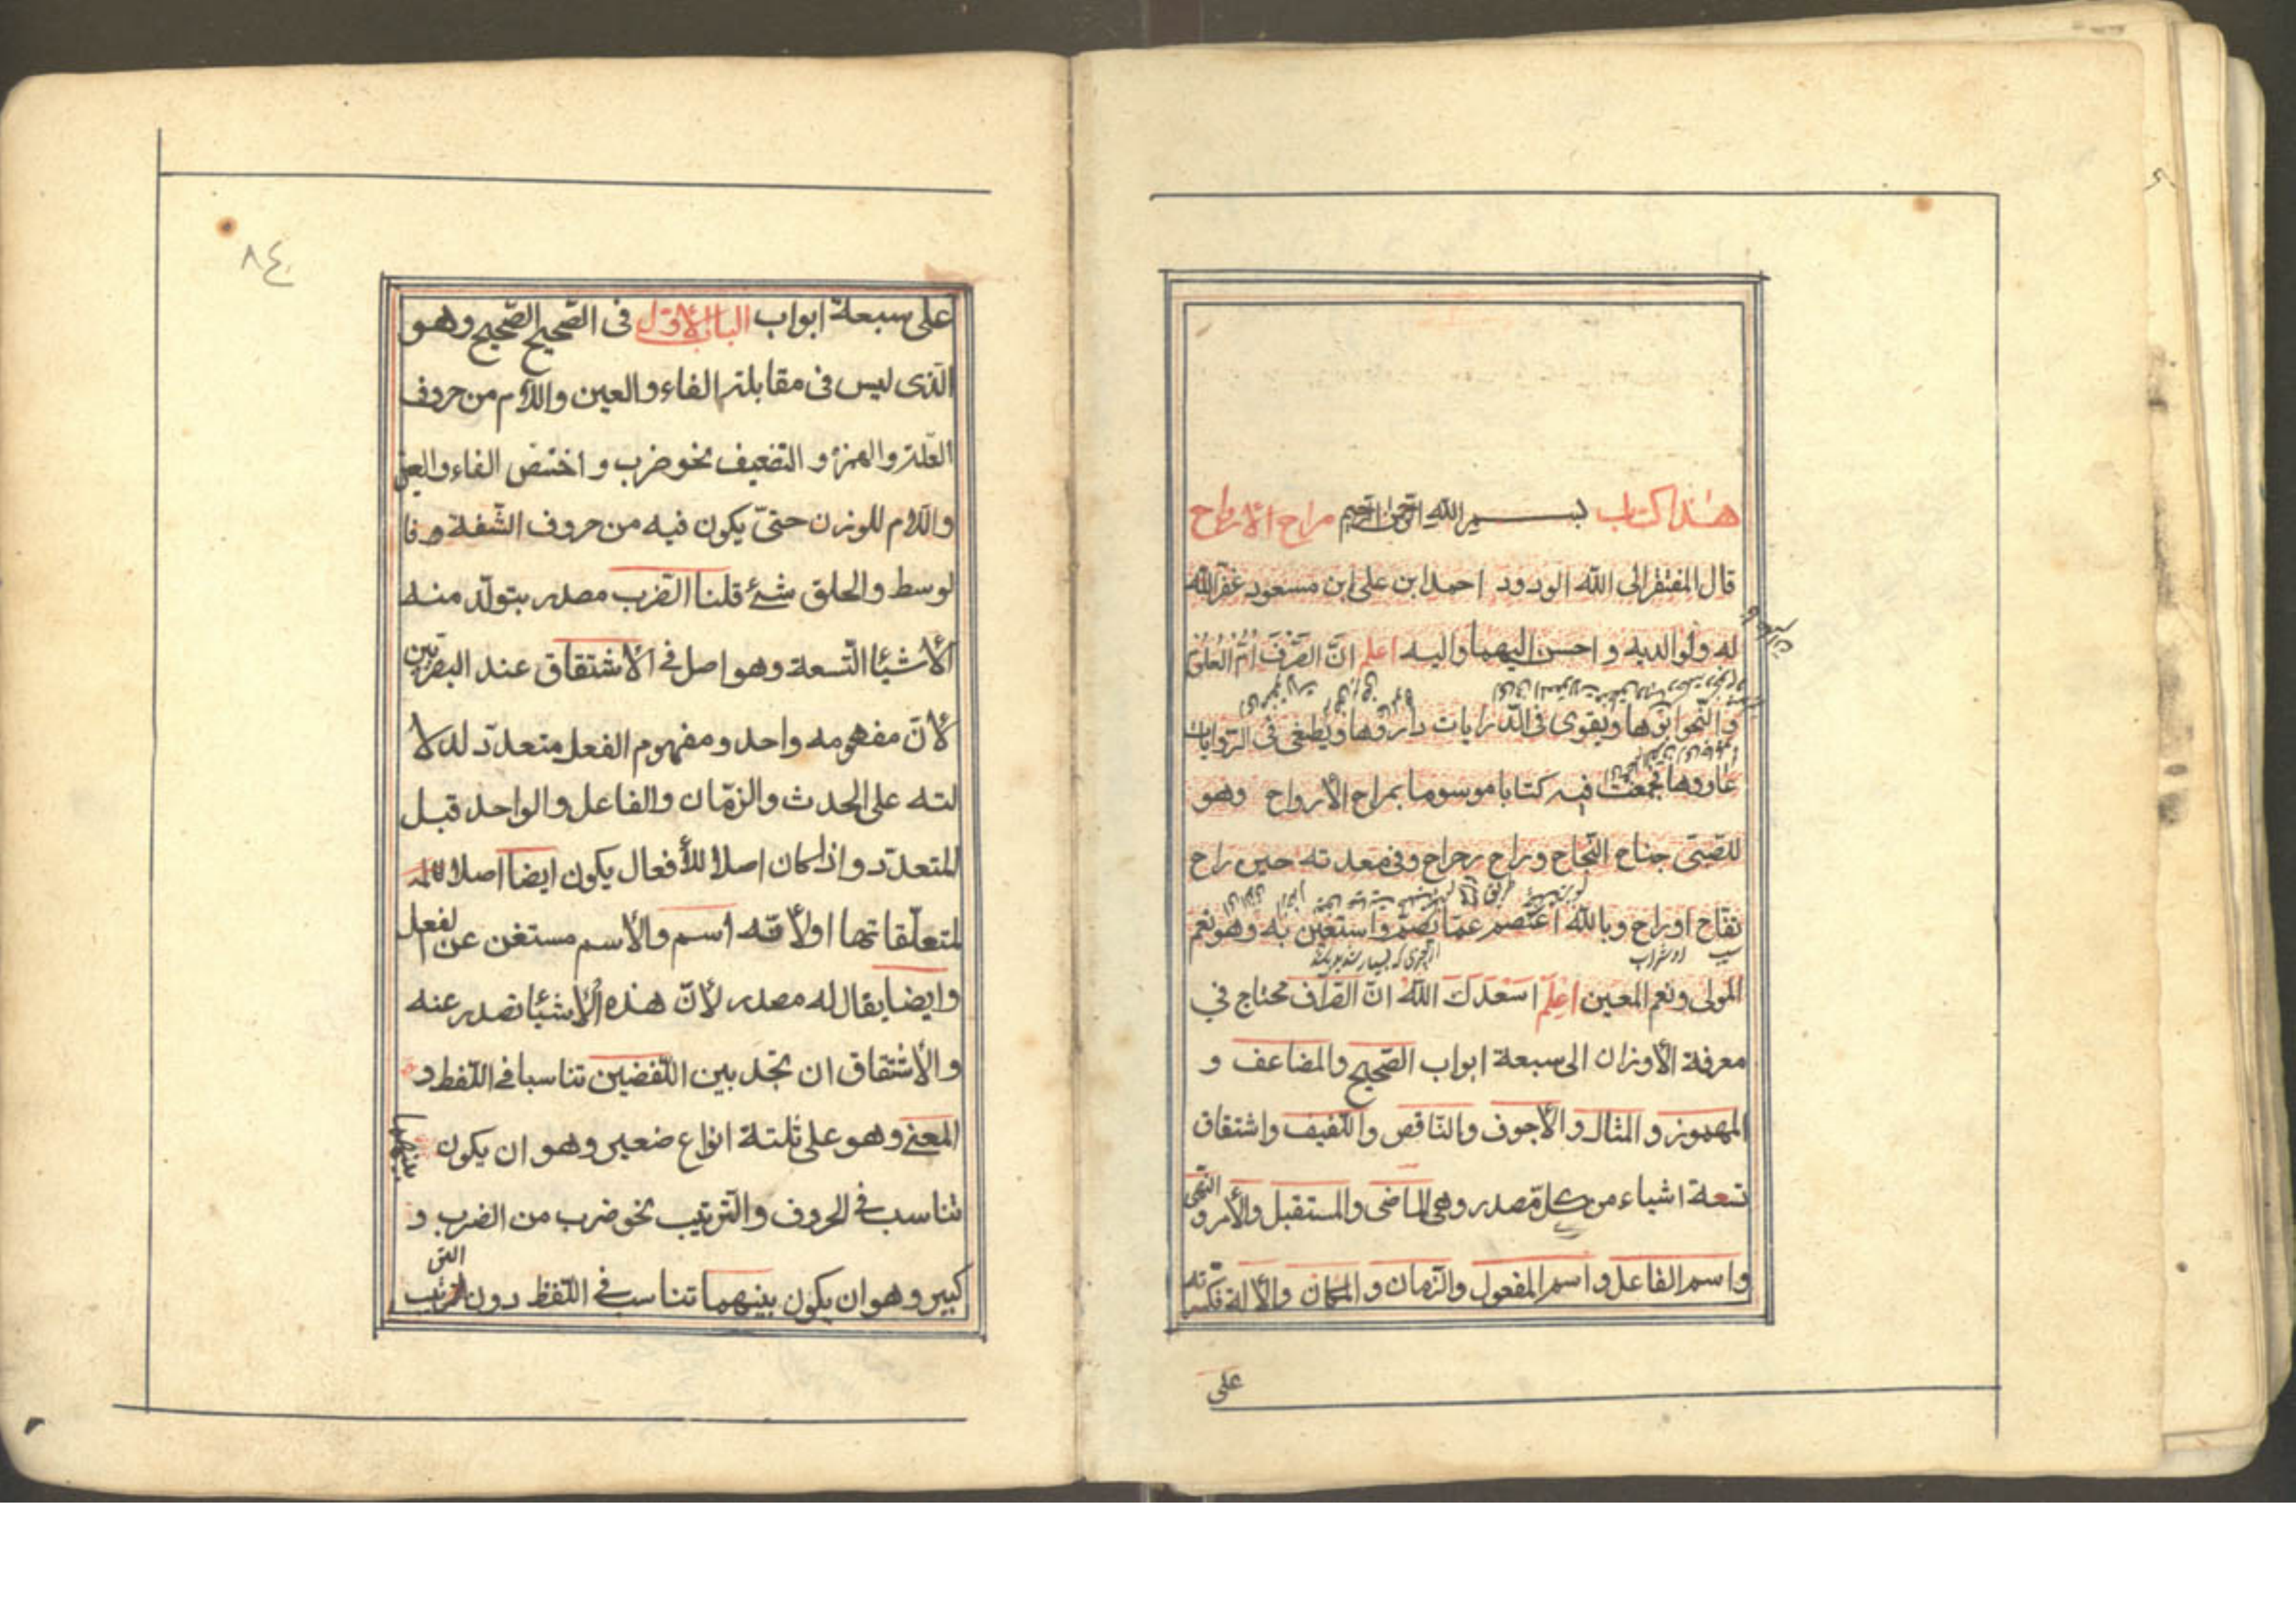 هذا كتاب بسم الله الرحمن الرحيم مراح الارواح
قال المفتقر الى الله الودود احمد ابن على ابن مسعود غفر الله
له ولوالديه و احسن اليهما واليه اعلم انّ الصّرفَ اُمّ العلوم
والنّحو ابوها ويقوى فى الدّرايات داروها ويطغى فى الرّوايات
عاروها فجمعت فيه كتابا موسوما بمراح الأرواح وهو
للصّبىّ جناح النّجاح وراح رحراح وفى معدته حين راح
تفّاح اوراح وبالله اعتصم عمّا يصم واستعين به وهو نعم
سيب
المولى ونعم المعين اعلم اسعدك اللّه انّ الصّراف محتاج في
معرفة الأوزان الى سبعة ابواب الصّحيح والمضاعف و
المهموز و المثال و الأجوف والنّاقص واللّفيف واشتقاق
تسعة اشياء من كلّ مصدر وهى الماضى والمستقبل والأمر و النّهى
واسم الفاعل و اسم المفعول والزّمان و المكان والألة فكسّرته
على
٨٤
على سبعة ابواب الباب الأوّل فى الصّحيح الصّحيح وهو
الّذى ليس فى مقابلة الفاء والعين واللّام من حروف
العلّة والهمزة و التضعيف نحو ضرب و اختصّ الفاء والعين
واللّام للوزن حتىّ يكون فيه من حروف الشّفة و فا
لوسط والحلق شئ قلنا الضّرب مصدر يتولّد منه
الأشئا التّسعة وهو اصل فى الأشتقاق عند البصريّين
لأنّ مفهومه واحد و مفهوم الفعل متعدّد لدلا
لته على الحدث والزمّان والفاعل والواحد قبل
المتعدّد واذا كان اصلا للأفعال يكون ايضا اصلا
لمتعلّقاتها اولأنّه اسم والأسم مستغن عن الفعل
وايضا يقال له مصدر لأنّ هذه الأشئا تصدر عنه
والأشتقاق ان تجد بين اللّفضين تناسبا فى اللّفظ و
المعنى وهو على ثلثة انواع ضعير وهو ان يكون بينهما
تناسب فى الحروف والتّرتيب نحو ضرب من الضرب و
كبير وهو ان يكون بينهما تناسب فى اللّفظ دون التّرتيب